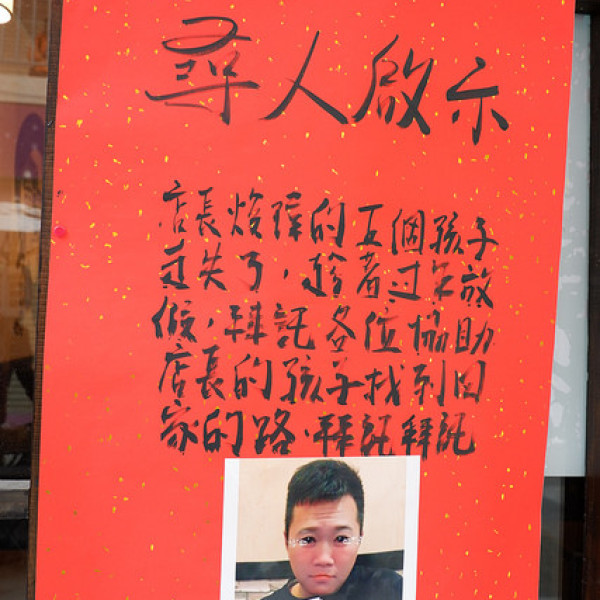 尋人啟示
店長焌瑋的五個孩子
走失了，趁著过年放
假，拜託各位協助
店長的孩子找到回
家的路，拜託拜託